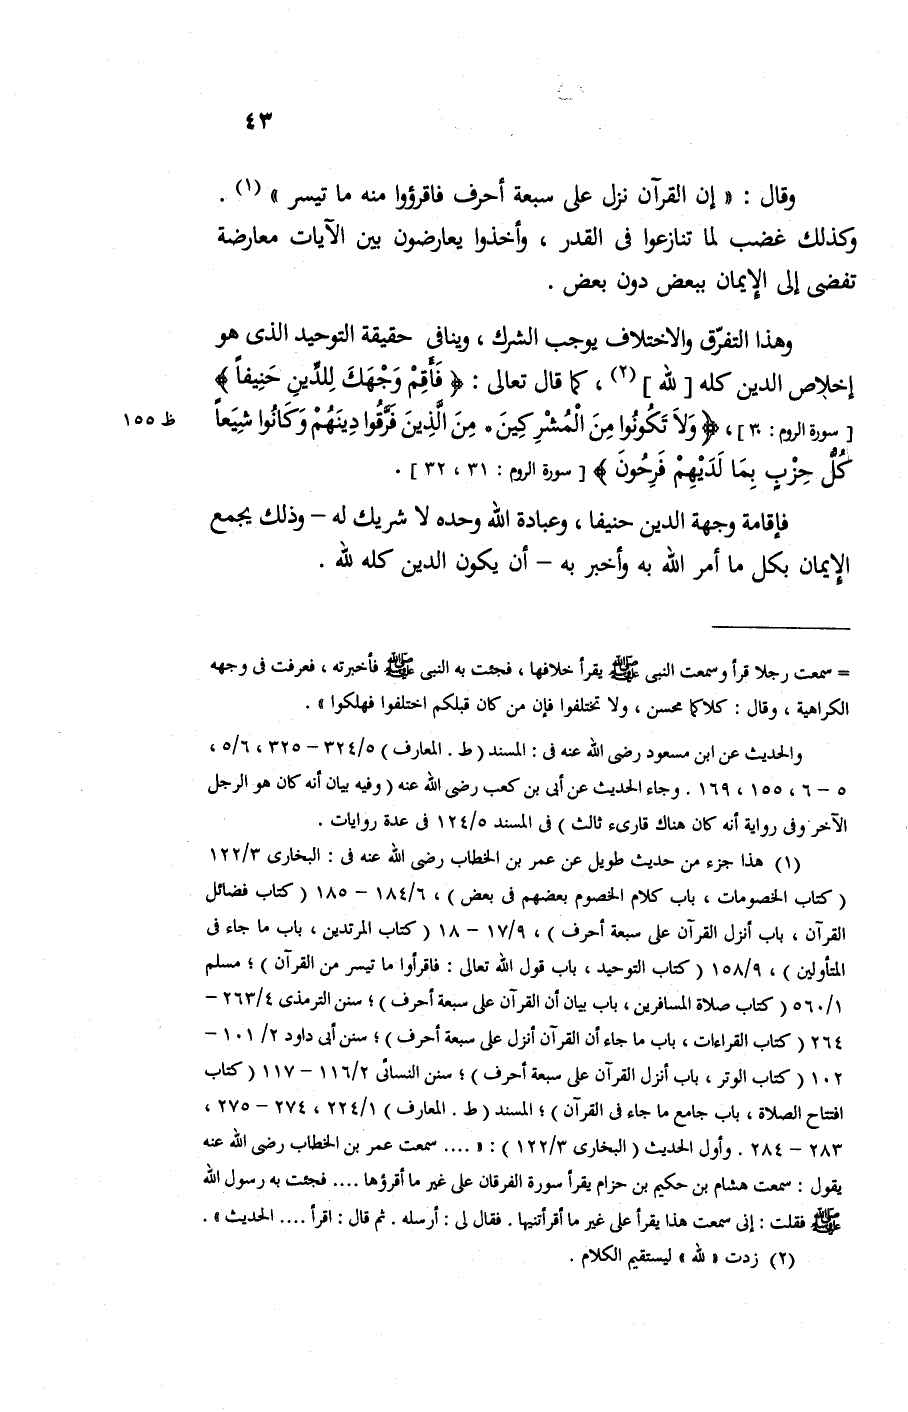 ٤٣
وقال : « إن القرآن نزل على سبعة أحرف فاقرؤوا منه ما تيسر » (١) .
وكذلك غضب لما تنازعوا فى القدر ، وأخذوا يعارضون بين الآيات معارضة
تفضى إلى الإيمان ببعض دون بعض .
وهذا التفرّق والاختلاف يوجب الشرك ، وينافى حقيقة التوحيد الذى هو
إخلاص الدين كله [ لله ] (٢) ، كما قال تعالى : ﴿ فَأَقِمْ وَجْهَكَ لِلدِّينِ حَنِيفاً ﴾
[ سورة الروم : ٣٠ ] ، ﴿ وَلاَ تَكُونُوا مِنَ الْمُشْرِكِينَ * مِنَ الَّذِينَ فَرَّقُوا دِينَهُمْ وَكَانُوا شِيَعاً ظ ١٥٥
كُلُّ حِزْبٍ بِمَا لَدَيْهِمْ فَرِحُونَ ﴾ [ سورة الروم : ٣١ ، ٣٢ ] .
فإقامة وجهة الدين حنيفا ، وعبادة الله وحده لا شريك له – وذلك يجمع
الإيمان بكل ما أمر الله به وأخبر به – أن يكون الدين كله لله .
= سمعت رجلا قرأ وسمعت النبى ﷺ يقرأ خلافها ، فجئت به النبى ﷺ فأخبرته ، فعرفت فى وجهه
الكراهية ، وقال : كلاكما محسن ، ولا تختلفوا فإن من كان قبلكم اختلفوا فهلكوا » .
والحديث عن ابن مسعود رضى الله عنه فى : المسند ( ط . المعارف ) ٣٢٤/٥ – ٣٢٥ ، ٥/٦ ،
٥ – ٦ ، ١٥٥ ، ١٦٩ . وجاء الحديث عن أبى بن كعب رضى الله عنه ( وفيه بيان أنه كان هو الرجل
الآخر وفى رواية أنه كان هناك قارىء ثالث ) فى المسند ١٢٤/٥ فى عدة روايات .
(١) هذا جزء من حديث طويل عن عمر بن الخطاب رضى الله عنه فى : البخارى ١٢٢/٣
( كتاب الخصومات ، باب كلام الخصوم بعضهم فى بعض ) ، ١٨٤/٦ – ١٨٥ ( كتاب فضائل
القرآن ، باب أنزل القرآن على سبعة أحرف ) ، ١٧/٩ – ١٨ ( كتاب المرتدين ، باب ما جاء فى
المتأولين ) ، ١٥٨/٩ ( كتاب التوحيد ، باب قول الله تعالى : فاقرأوا ما تيسر من القرآن ) ؛ مسلم
٥٦٠/١ ( كتاب صلاة المسافرين ، باب بيان أن القرآن على سبعة أحرف ) ؛ سنن الترمذى ٢٦٣/٤ –
٢٦٤ ( كتاب القراءات ، باب ما جاء أن القرآن أنزل على سبعة أحرف ) ؛ سنن أبى داود ٢/ ١٠١ –
١٠٢ ( كتاب الوتر ، باب أنزل القرآن على سبعة أحرف ) ؛ سنن النسائى ١١٦/٢ – ١١٧ ( كتاب
افتتاح الصلاة ، باب جامع ما جاء فى القرآن ) ؛ المسند ( ط . المعارف ) ٢٢٤/١ ، ٢٧٤ – ٢٧٥ ،
٢٨٣ – ٢٨٤ . وأول الحديث ( البخارى ١٢٢/٣ ) : « .... سمعت عمر بن الخطاب رضى الله عنه
يقول : سمعت هشام بن حكيم بن حزام يقرأ سورة الفرقان على غير ما أقرؤها .... فجئت به رسول الله
ﷺ فقلت : إنى سمعت هذا يقرأ على غير ما أقرأتنيها . فقال لى : أرسله . ثم قال : اقرأ .... الحديث » .
(٢) زدت « لله » ليستقيم الكلام .